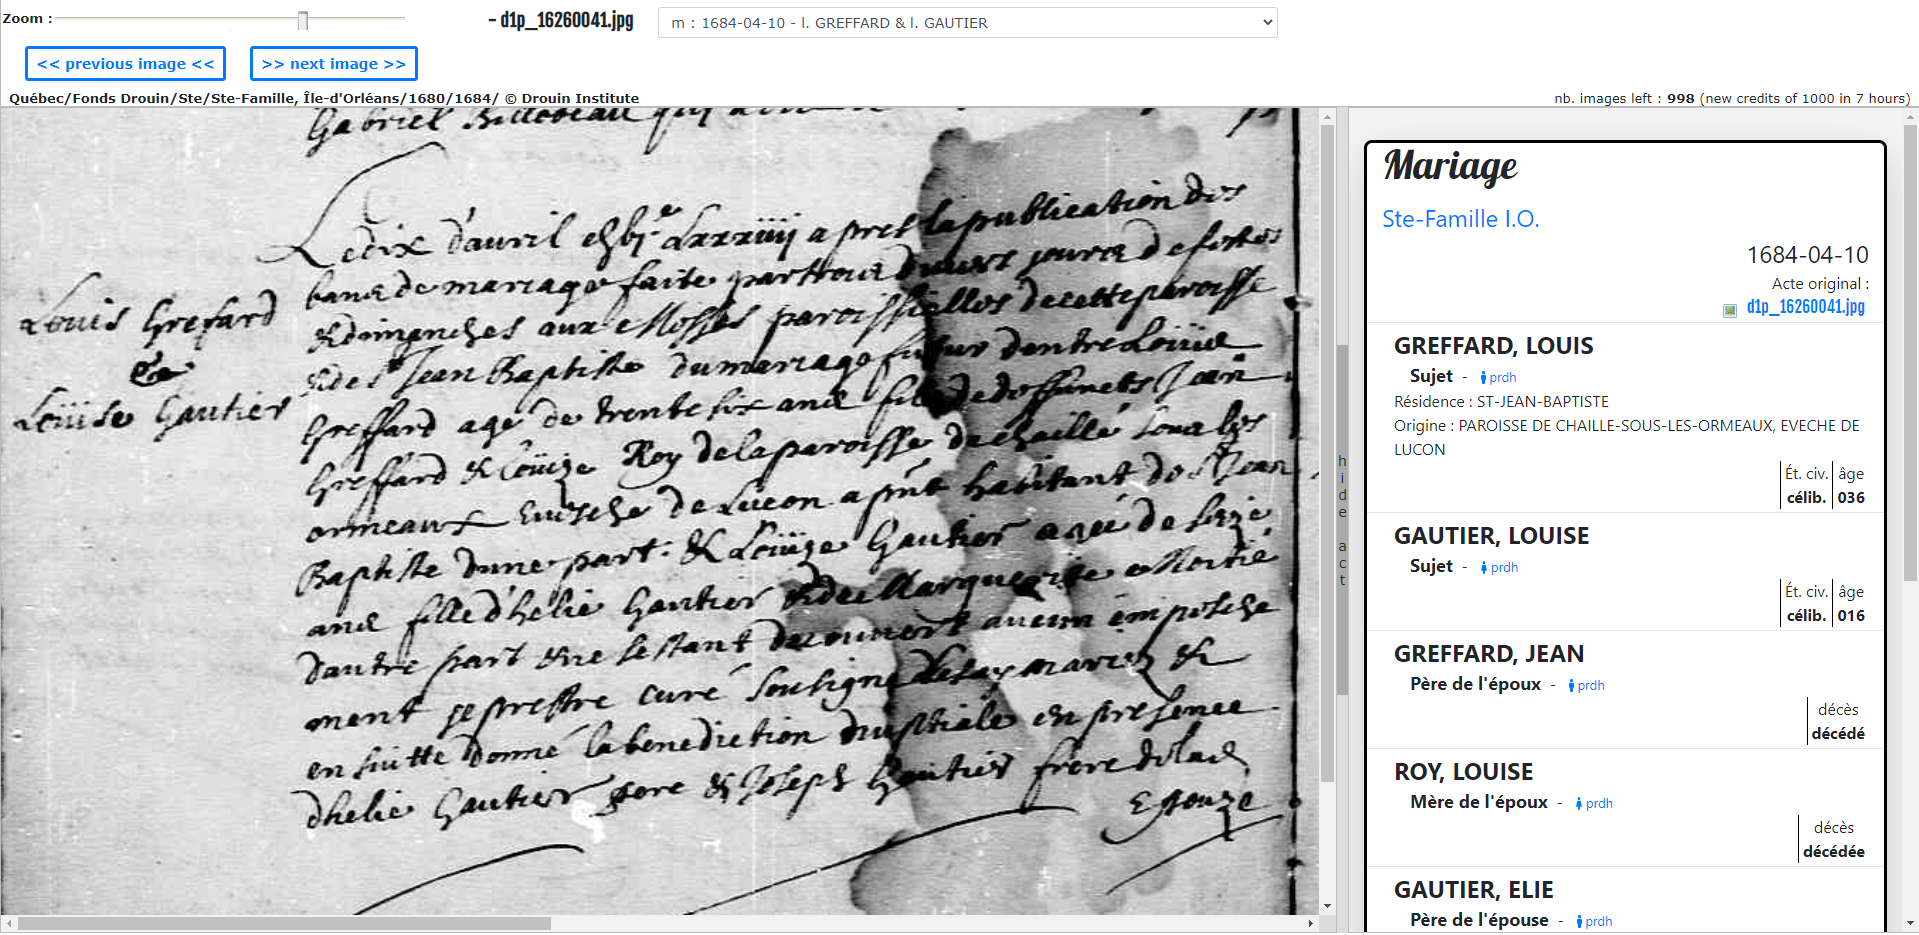 Zoom :
- d1p_16260041.jpg
m : 1684-04-10 - l. GREFFARD & l. GAUTIER
<< previous image <<
>> next image >>
Québec/Fonds Drouin/Ste/Ste-Famille, Île-d'Orléans/1680/1684/ © Drouin Institute
nb. images left : 998 (new credits of 1000 in 7 hours)
Gabriel Billodeau qui
Le dix d'avril apres la publication des
bans de mariage faite par trois divers jours de festes
& dimenches aux Messes paroissielles de cette paroisse
& de St Jean Baptiste du mariage futur d'entre Loüis
Greffard agé de trente six ans fils de deffunts Jean
Greffard & Loüize Roy de la paroisse de chaillé sous les
ormeaux Evesché de Luçon apnt habitant de St Jean
Baptiste d'une part. & Loüize Gautier agée de seize
ans fille d'helie Gautier & de Marguerite Moitié
d'autre part & ne s'estant decouvert aucun empesche
ment je prestre curé soubsigné les ay mariez &
en suitte donné la benediction nuptiale en presence
d'helie Gautier pere & Joseph Gautier frere de lad
Louis Grefard
&
Loüise Gautier
hide act
Mariage
Ste-Famille I.O.
1684-04-10
Acte original :
d1p_16260041.jpg
GREFFARD, LOUIS
Sujet - prdh
Résidence : ST-JEAN-BAPTISTE
Origine : PAROISSE DE CHAILLE-SOUS-LES-ORMEAUX, EVECHE DE
LUCON
Ét. civ. âge
célib. 036
GAUTIER, LOUISE
Sujet - prdh
Ét. civ. âge
célib. 016
GREFFARD, JEAN
Père de l'époux - prdh
décès
décédé
ROY, LOUISE
Mère de l'époux - prdh
décès
décédée
GAUTIER, ELIE
Père de l'épouse - prdh